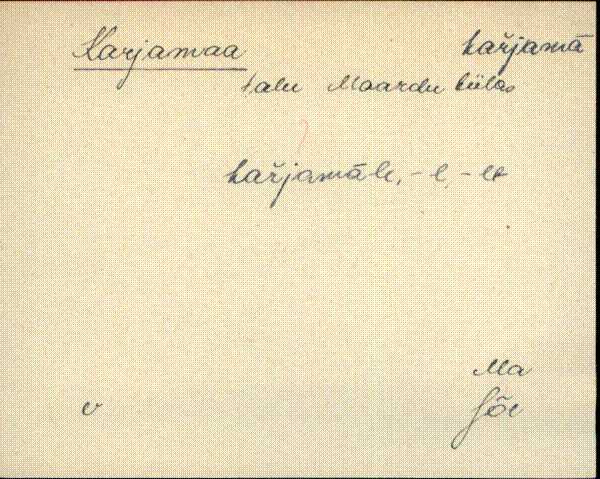 Karjamaa kařjamā
talu Maardu külas
kařjamāle, -l, -lt
Ma
v Jõe